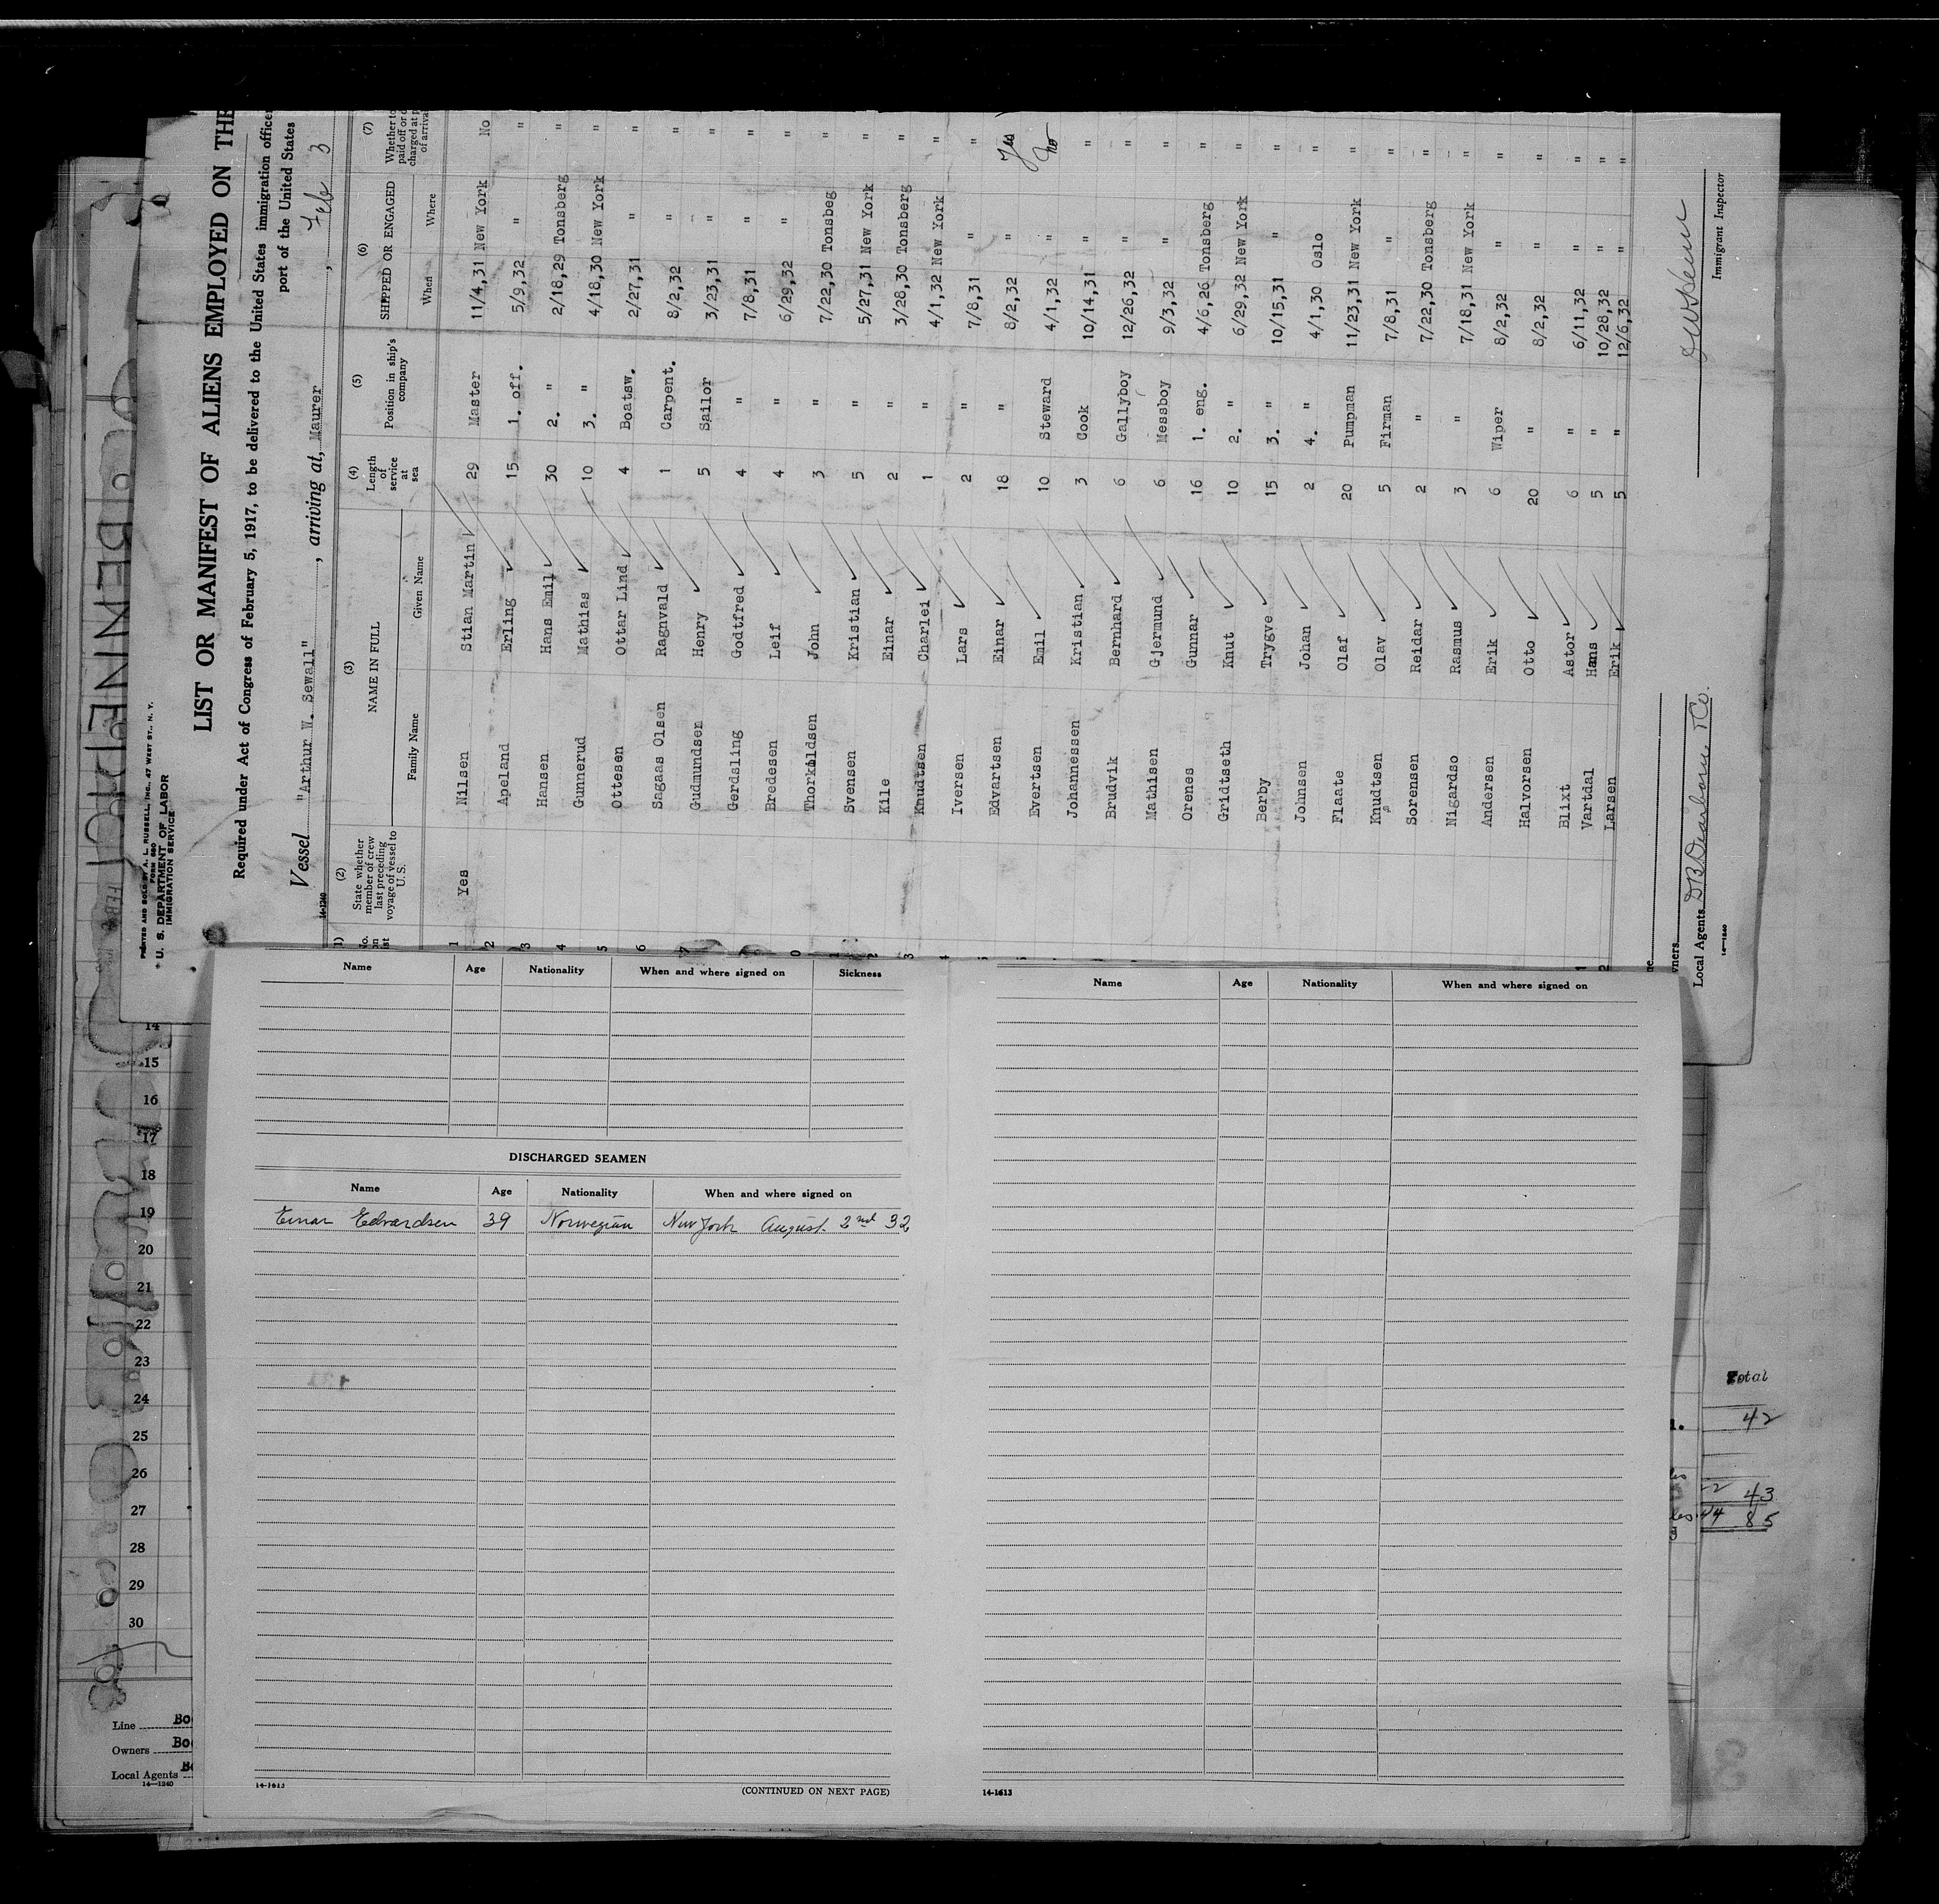 PRINTED AND SOLD BY A. L. RUSSELL, INC., 47 WEST ST., N. Y.
FORM 680
U. S. DEPARTMENT OF LABOR
IMMIGRATION SERVICE
LIST OR MANIFEST OF ALIENS EMPLOYED ON THE
Required under Act of Congress of February 5, 1917, to be delivered to the United States immigration officer
port of the United States
Vessel "Arthur W. Sewall", arriving at, Maurer, Feb 3
14-1240
(2) (3) (4) (5) (6) (7)
State whether member of crew last preceding voyage of vessel to U.S. NAME IN FULL Family Name Given Name Length of service at sea Position in ship's company SHIPPED OR ENGAGED When Where
1 Yes Nilsen Stian Martin 29 Master 11/4,31 New York No
2 Apeland Erling 15 1. off. 5/9,32 " "
3 Hansen Hans Emil 30 2. " 2/18,29 Tonsberg "
4 Gunnerud Mathias 10 3. " 4/18,30 New York "
5 Ottesen Ottar Lind 4 Boatsw. 2/27,31 " "
6 Sagaas Olsen Ragnvald 1 Carpent. 8/2,32 " "
7 Gudmundsen Henry 5 Sailor 3/23,31 " "
Gerdsling Godtfred 4 " 7/8,31 " "
Bredesen Leif 4 " 6/29,32 " "
Thorkoldsen John 3 " 7/22,30 Tonsbeg "
Svensen Kristian 5 " 5/27,31 New York "
Kile Einar 2 " 3/28,30 Tonsberg "
Knudtsen Charlei 1 " 4/1,32 New York "
Iversen Lars 2 " 7/8,31 " "
Edvartsen Einar 18 " 8/2,32 " Yes
Evertsen Emil 10 Steward 4/1,32 " No
Johannessen Kristian 3 Cook 10/14,31 " "
Brudvik Bernhard 6 Gallyboy 12/26,32 " "
Mathisen Gjermund 6 Messboy 9/3,32 " "
Orenes Gunnar 16 1. eng. 4/6,26 Tonsberg "
Gridtseth Knut 10 2. " 6/29,32 New York "
Berby Trygve 15 3. " 10/15,31 " "
Johnsen Johan 2 4. " 4/1,30 Oslo "
Flaate Olaf 20 Pumpman 11/23,31 New York "
Knudtsen Olav 5 Firman 7/8,31 " "
Sorensen Reidar 2 " 7/22,30 Tonsberg "
Nigardso Rasmus 3 " 7/18,31 New York "
Andersen Erik 6 Wiper 8/2,32 " "
Halvorsen Otto 20 " 8/2,32 " "
Blixt Astor 6 " 6/11,32 " "
Vartdal Hans 5 " 10/28,32 " "
Larsen Erik 5 " 12/6,32 " "
Immigrant Inspector
Local Agents D.B. Dearborn & Co.
14-1240
Name Age Nationality When and where signed on Sickness
DISCHARGED SEAMEN
Name Age Nationality When and where signed on
Einar Edvardsen 39 Norwegian New York August 2nd 32
14-1613
(CONTINUED ON NEXT PAGE)
Name Age Nationality When and where signed on
14-1613
14
15
16
17
18
19
20
21
22
23
24
25
26
27
28
29
30
Line
Owners
Local Agents
14-1240
Total
42
43
44 85